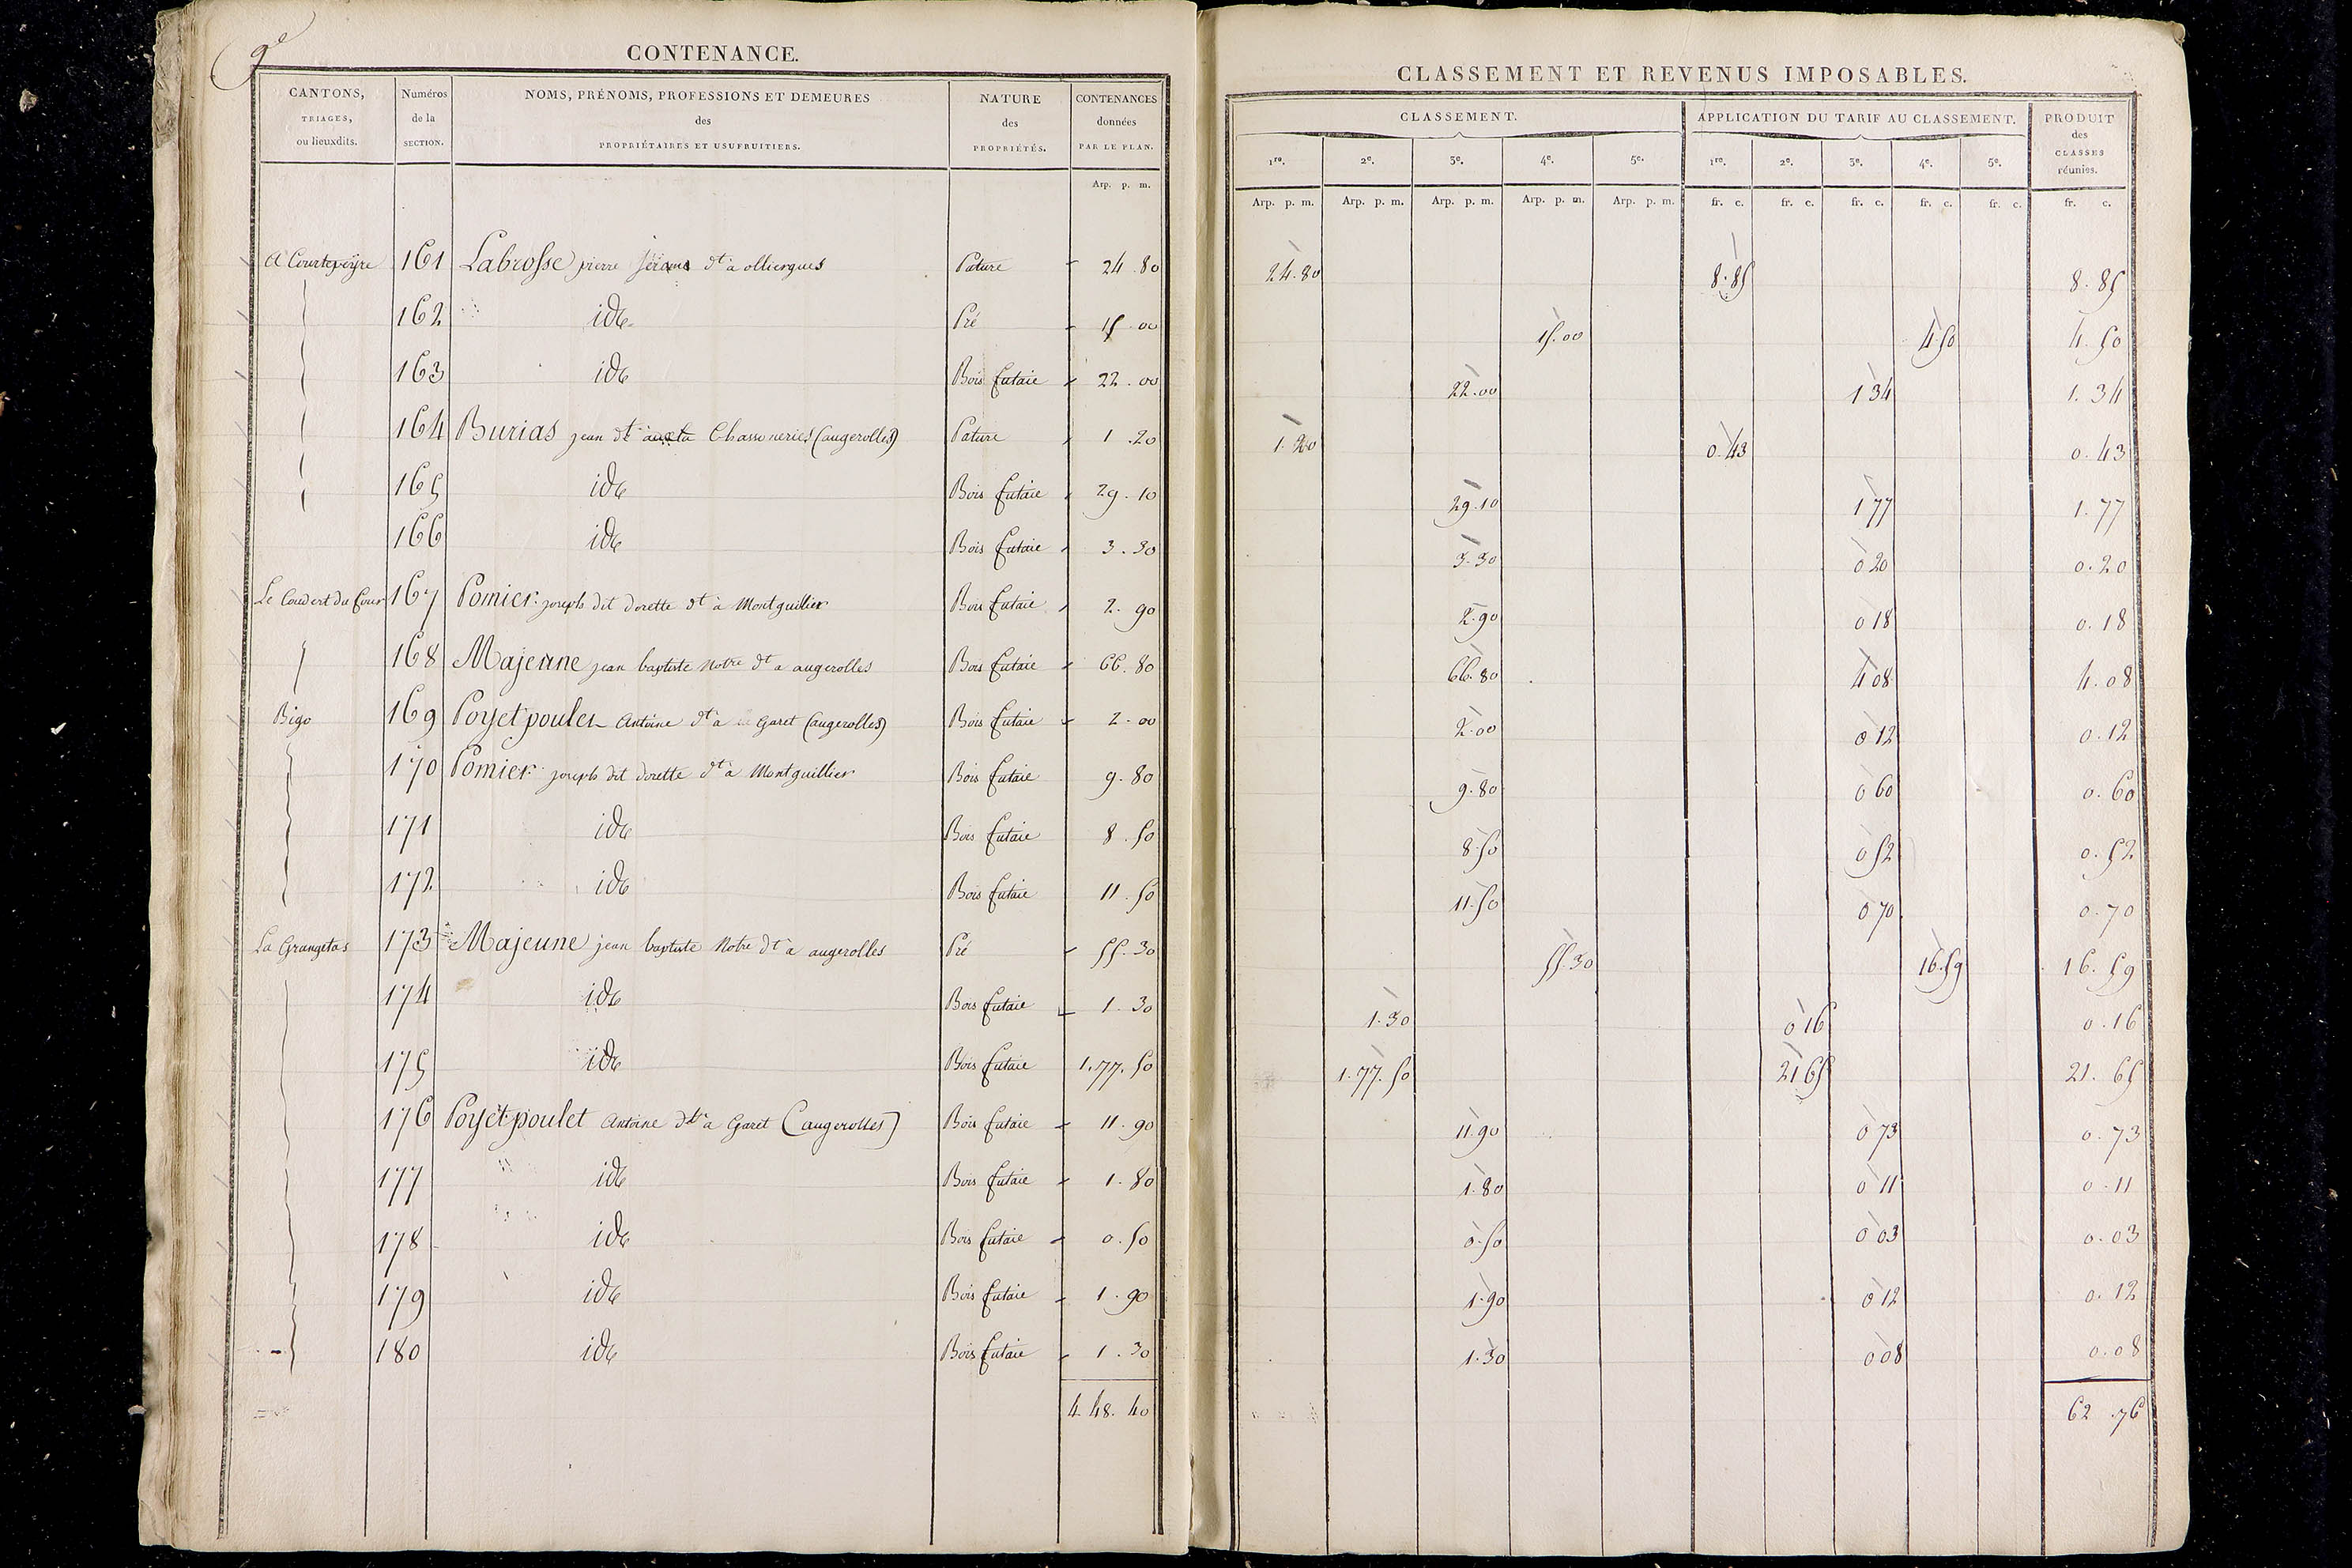 9e
CONTENANCE.
CANTONS, TRIAGES, ou lieuxdits. Numéros de la SECTION. NOMS, PRÉNOMS, PROFESSIONS ET DEMEURES des PROPRIÉTAIRES ET USUFRUITIERS. NATURE des PROPRIÉTÉS. CONTENANCES données PAR LE PLAN.
Arp. p. m.
A Courtepeÿre 161 Labrosse pierre dt à olliergues Pature 24.80
162 ide Pré 15.00
163 ide Bois futaie 22.00
164 Burias jean dt Chassoneries (augerolles) Pature 1.20
165 ide Bois futaie 29.10
166 ide Bois futaie 3.30
Le Coudert du Four 167 Pomier joseph dit dorette dt à Montguillier Bois futaie 2.90
168 Majeune jean baptiste Notre dt a augerolles Bois futaie 66.80
Bigo 169 Poyet poulet Antoine dt a Garet (augerolles) Bois futaie 2.00
170 Pomier joseph dit dorette dt à Montguillier Bois futaie 9.80
171 ide Bois futaie 8.50
172 ide Bois futaie 11.50
La Grangetas 173 Majeune jean baptiste Notre dt a augerolles Pré 55.30
174 ide Bois futaie 1.30
175 ide Bois futaie 1.77.50
176 Poyet poulet Antoine dt a Garet (augerolles) Bois futaie 11.90
177 ide Bois futaie 1.80
178 ide Bois futaie 0.50
179 ide Bois futaie 1.90
180 ide Bois futaie 1.30
4.48.40
CLASSEMENT ET REVENUS IMPOSABLES.
CLASSEMENT. APPLICATION DU TARIF AU CLASSEMENT. PRODUIT des CLASSES réunies.
1re. 2e. 3e. 4e. 5e. 1re. 2e. 3e. 4e. 5e.
Arp. p. m. Arp. p. m. Arp. p. m. Arp. p. m. Arp. p. m. fr. c. fr. c. fr. c. fr. c. fr. c. fr. c.
24.80 8.85 8.85
15.00 4.50 4.50
22.00 1 34 1.34
1.20 0.43 0.43
29.10 1 77 1.77
3.30 0 20 0.20
2.90 0 18 0.18
66.80 4 08 4.08
2.00 0 12 0.12
9.80 0 60 0.60
8.50 0 52 0.52
11.50 0 70 0.70
55.30 16.59 16.59
1.30 0 16 0.16
1.77.50 21 65 21.65
11.90 0 73 0.73
1.80 0 11 0.11
0.50 0 03 0.03
1.90 0 12 0.12
1.30 0 08 0.08
62.76